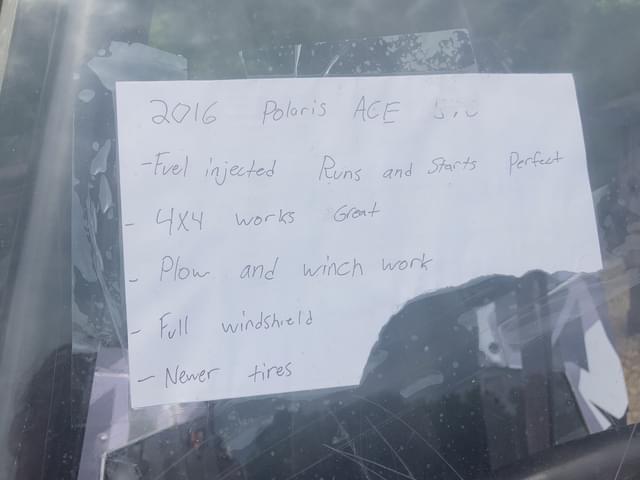 2016 Polaris ACE
-Fuel injected Runs and Starts Perfect
- 4X4 works Great
- Plow and winch work
- Full windshield
- Newer tires